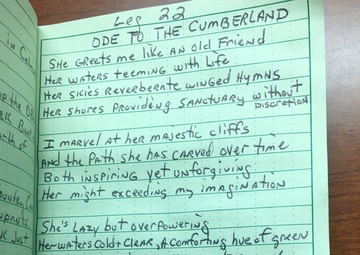 in Col
Leg 22
ODE TO THE CUMBERLAND
She greets me like an old friend
Her waters teeming with life
Her skies reverberate winged hymns
Her shores providing sanctuary without discretion
I marvel at her majestic cliffs
And the path she has carved over time
Both inspiring yet unforgiving
Her might exceeding my imagination
She's lazy but overpowering
Her waters cold & clear, a comforting hue of green